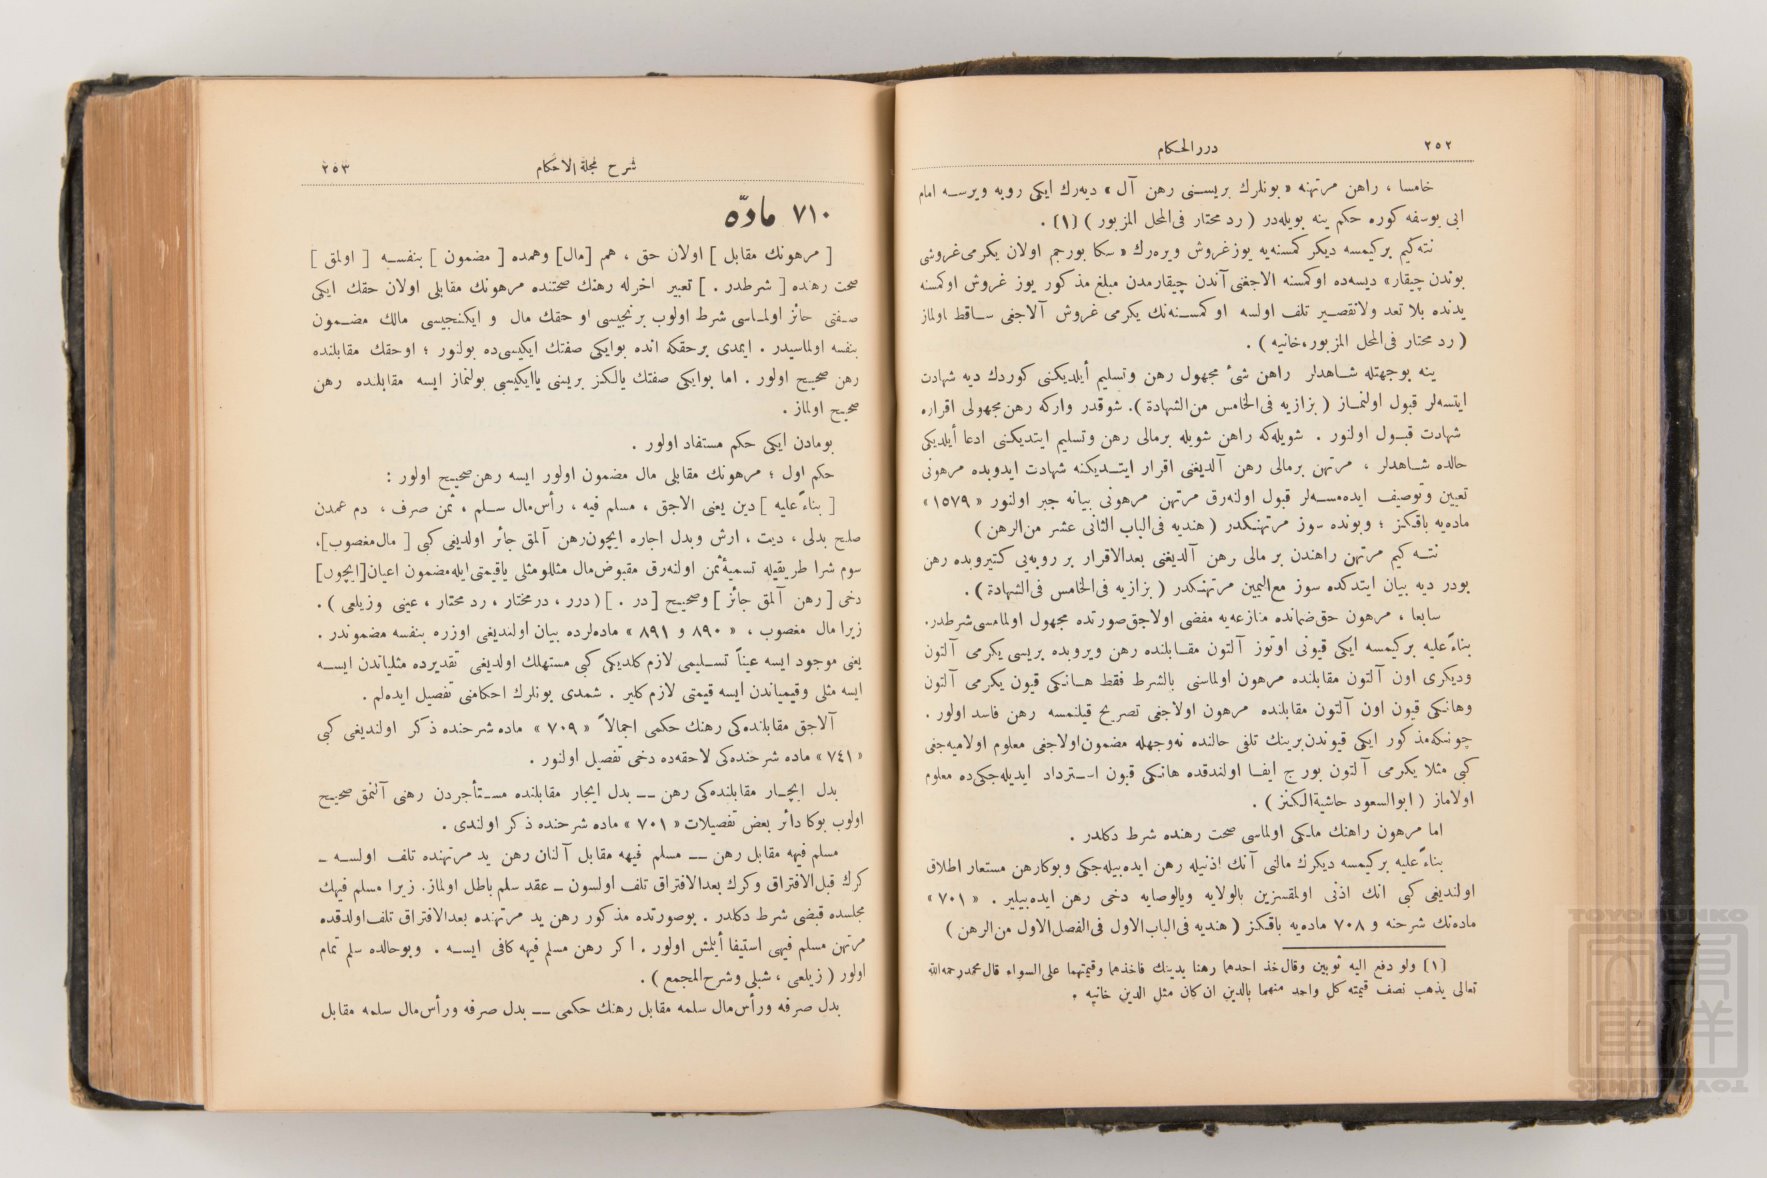 ٢٥٢
درر الحكام
خامسا ، راهن مرتهنه « بونلرك بريسنى رهن آل » ديه‌رك ايكى روبه ويرسه امام
ابى يوسفه كوره حكم ينه بويله‌در ( رد مختار فى‌المحل المزبور ) [١] .
نته‌كيم بركيمسه ديكر كمسنه‌يه يوزغروش ويره‌رك « سكا بورجم اولان يكرمى‌غروشى
بوندن چيقار» ديسه‌ده اوكمسنه الاجغنى آندن چيقارمدن مبلغ مذكور يوز غروش اوكمسنه
يدنده بلا تعد ولاتقصير تلف اولسه اوكمسنه‌نك يكرمى غروش آلاجغى ساقط اولماز
( رد مختار فى‌المحل المزبور،خانيه ) .
ينه بوجهتله شاهدلر راهن شىء مجهول رهن وتسليم أيلديكنى كوردك ديه شهادت
ايتسه‌لر قبول اولنماز ( بزازيه فى‌الخامس من‌الشهادة ). شوقدر واركه رهن‌مجهولى اقراره
شهادت قبول اولنور . شويله‌كه راهن شويله برمالى رهن وتسليم ايتديكنى ادعا أيلديكى
حالده شاهدلر ، مرتهن برمالى رهن آلديغنى اقرار ايتديكنه شهادت ايدوبده مرهونى
تعيين وتوصيف ايده‌مسه‌لر قبول اولنه‌رق مرتهن مرهونى بيانه جبر اولنور « ١٥٧٩ »
ماده‌يه باقكز ؛ وبونده سوز مرتهنكدر ( هنديه فى‌الباب الثانى عشر من‌الرهن )
نته كيم مرتهن راهندن بر مالى رهن آلديغنى بعدالاقرار بر روبه‌يى كتيروبده رهن
بودر ديه بيان ايتدكده سوز مع‌اليمين مرتهنكدر ( بزازيه فى‌الخامس فى‌الشهادة ) .
سابعا ، مرهون حق‌ضمانده منازعه‌يه مفضى اولاجق‌صورتده مجهول اولمامسى‌شرطدر.
بناءً عليه بركيمسه ايكى قيونى اوتوز آلتون مقابلنده رهن ويروبده بريسى يكرمى آلتون
وديكرى اون آلتون مقابلنده مرهون اولماسنى بالشرط فقط هانكى قيون يكرمى آلتون
وهانكى قيون اون آلتون مقابلنده مرهون اولاجغى تصريح قيلنمسه رهن فاسد اولور .
چونكه‌مذكور ايكى قيوندن‌برينك تلفى حالنده نه‌وجهله مضمون‌اولاجغى معلوم اولاميه‌جغى
كبى مثلا يكرمى آلتون بورج ايفا اولندقده هانكى قيون استرداد ايديله‌جكى‌ده معلوم
اولاماز ( ابوالسعود حاشيةالكنز ) .
اما مرهون راهنك ملكى اولماسى صحت رهنده شرط دكلدر .
بناءً عليه بركيمسه ديكرك مالنى آنك اذنيله رهن ايده‌بيله‌جكى وبوكارهن مستعار اطلاق
اولنديغى كبى انك اذنى اولمقسزين بالولايه ويالوصايه دخى رهن ايده‌بيلير . « ٧٠١ »
ماده‌نك شرحنه و ٧٠٨ ماده‌يه باقكز ( هنديه فى‌الباب‌الاول فى‌الفصل‌الاول من‌الرهن )
[١] ولو دفع اليه ثوبين وقال‌خذ احدهما رهنا بدينك فاخذهما وقيمتهما على‌السواء قال‌محمدرحمه‌الله
تعالى يذهب نصف قيمته كل واحد منهما بالدين ان كان مثل الدين خانيه .
شرح مجلة الاحكام
٢٥٣
٧١٠ مادّه
[ مرهونك مقابل ] اولان حق ، هم [مال] وهمده [ مضمون ] بنفسه [ اولمق ]
صحت رهنده [ شرطدر . ] تعبير اخرله رهنك صحتنده مرهونك مقابلى اولان حقك ايكى
صفتى حائز اولماسى شرط اولوب برنجيسى او حقك مال و ايكنجيسى مالك مضمون
بنفسه اولماسيدر . ايمدى برحقكه انده بوايكى صفتك ايكيسى‌ده بولنور ؛ اوحقك مقابلنده
رهن صحيح اولور . اما بوايكى صفتك يالكز بريسى ياايكيسى بولنماز ايسه مقابلنده رهن
صحيح اولماز .
بومادن ايكى حكم مستفاد اولور .
حكم اول ؛ مرهونك مقابلى مال مضمون اولور ايسه رهن‌صحيح اولور :
[ بناءً عليه ] دين يعنى الاجق ، مسلم فيه ، رأس‌مال سلم ، ثمن صرف ، دم عمدن
صلح بدلى ، ديت ، ارش وبدل اجاره ايچون‌رهن آلمق جائز اولديغى كبى [ مال‌مغصوب]،
سوم شرا طريقيله تسميۀ‌ثمن اولنه‌رق مقبوض‌مال مثللومثلى ياقيمتى‌ايله‌مضمون اعيان[ايچون]
دخى [ رهن آلمق جائز ] وصحيح [ در . ] ( درر ، درمختار ، رد محتار ، عينى وزيلعى ) .
زيرا مال مغصوب ، « ٨٩٠ و ٨٩١ » ماده‌لرده بيان اولنديغى اوزره بنفسه مضموندر .
يعنى موجود ايسه عيناً تسليمى لازم كلديكى كبى مستهلك اولديغى تقديرده مثلياتدن ايسه
ايسه مثلى وقيمياتدن ايسه قيمتى لازم‌كلير . شمدى بونلرك احكامنى تفصيل ايده‌لم .
آلاجق مقابلنده‌كى رهنك حكمى اجمالاً « ٧٠٩ » ماده شرحنده ذكر اولنديغى كبى
« ٧٤١ » ماده شرحنده‌كى لاحقه‌ده دخى تفصيل اولنور .
بدل ايجار مقابلنده‌كى رهن ــ بدل ايجار مقابلنده مستأجردن رهنى آلنمق صحيح
اولوب بوكا دائر بعض تفصيلات « ٧٠١ » ماده شرحنده ذكر اولندى .
مسلم فيه مقابل رهن ــ مسلم فيهه مقابل آلنان رهن يد مرتهنده تلف اولسه ــ
كرك قبل‌الافتراق وكرك بعدالافتراق تلف اولسون ــ عقد سلم باطل اولماز. زيرا مسلم فيهك
مجلسده قبضى شرط دكلدر . بوصورتده مذكور رهن يد مرتهنده بعدالافتراق تلف‌اولدقده
مرتهن مسلم فيهى استيفا أيلمش اولور . اكر رهن مسلم فيهه كافى ايسه . وبوحالده سلم تمام
اولور ( زيلعى ، شبلى وشرح‌المجمع ) .
بدل صرفه ورأس‌مال سلمه مقابل رهنك حكمى ــ بدل صرفه ورأس‌مال سلمه مقابل
TOYO BUNKO